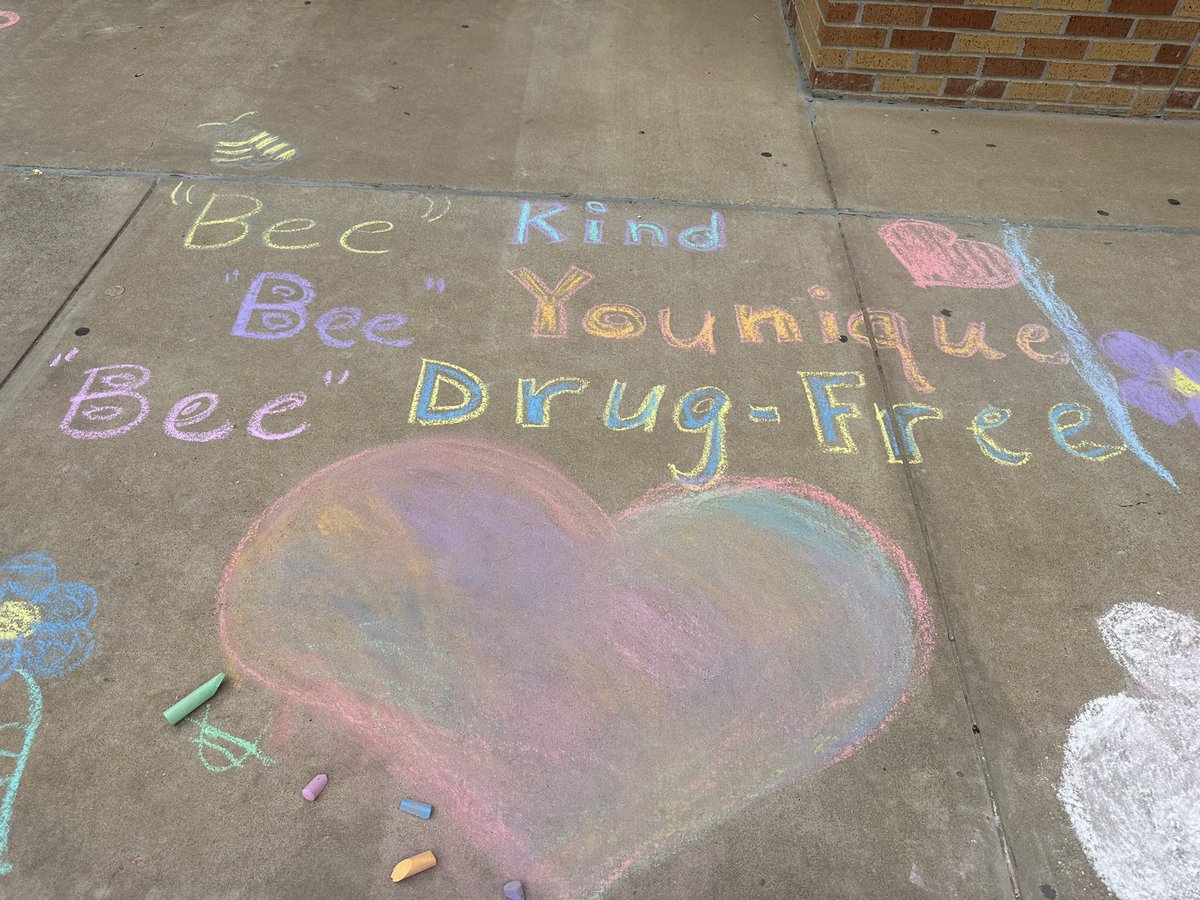 "Bee" Kind
"Bee" Younique
"Bee" Drug-Free